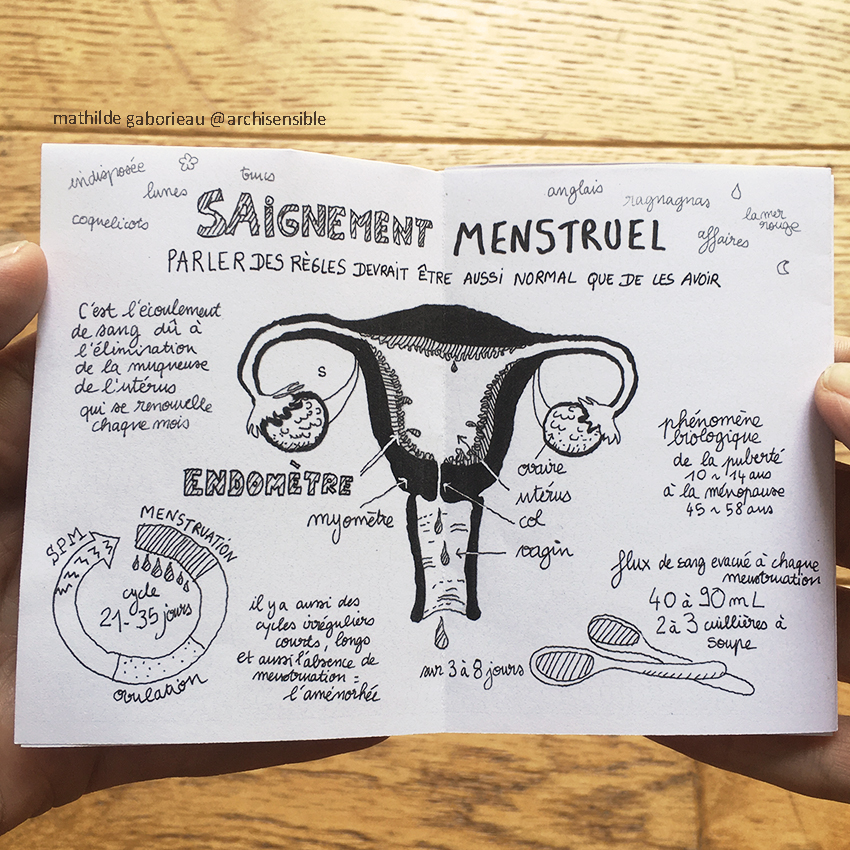 mathilde gaborieau @archisensible
indisposée
lunes
trucs
coquelicots
anglais
ragnagnas
la mer
rouge
affaires
SAIGNEMENT MENSTRUEL
PARLER DES RÈGLES DEVRAIT ÊTRE AUSSI NORMAL QUE DE LES AVOIR
C'est l'écoulement
de sang dû à
l'élimination
de la muqueuse
de l'utérus
qui se renouvelle
chaque mois
S
ENDOMÈTRE
myomètre
ovaire
utérus
col
vagin
phénomène
biologique
de la puberté
10 ~ 14 ans
à la ménopause
45 ~ 58 ans
SPM
MENSTRUATION
cycle
21~35 jours
ovulation
il y a aussi des
cycles irréguliers
courts, longs
et aussi l'absence de
menstruation =
l'aménorhée
flux de sang evacué à chaque
menstruation
40 à 90 mL
2 à 3 cuillières à
soupe
sur 3 à 8 jours